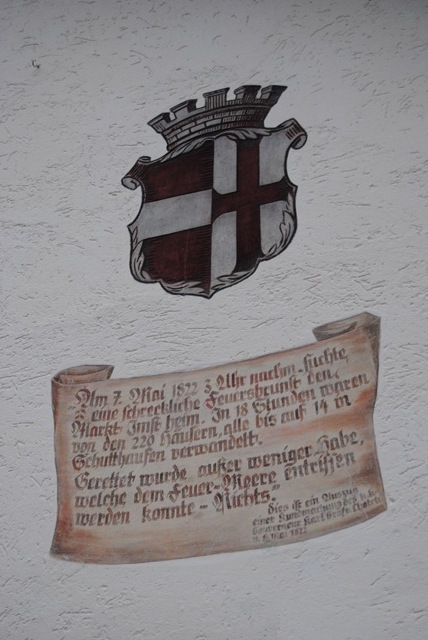 "Am 7. Mai 1822 3 Uhr nachm. suchte
eine schreckliche Feuersbrunst den
Markt Imst heim. In 18 Stunden waren
von den 220 Häusern, alle bis auf 14 in
Schutthaufen verwandelt.
Gerettet wurde außer weniger Habe,
welche dem Feuer-Meere entrissen
werden konnte - Nichts."
Dies ist ein Auszug
einer Kundmachung des k.k.
Gouverneur Karl Grafn Chotek
Mai 1822